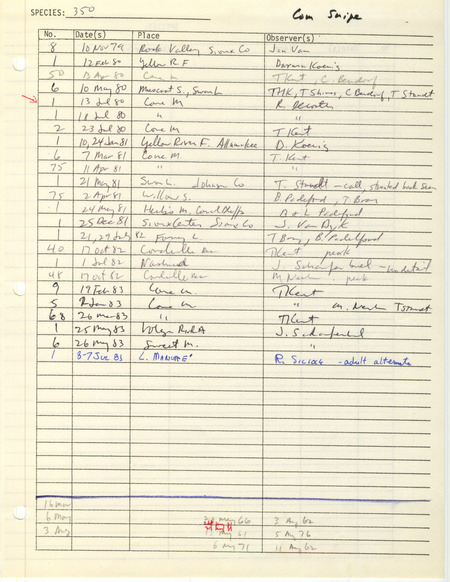 SPECIES: 350 Com Snipe
No. Date(s) Place Observer(s)
8 10 Nov 79 Rock Valley Sioux Co Jon Van
1 12 Feb 80 Yellow R F Darwin Koenig
50 13 Apr 80 Cone M TKent, C Bendorf
6 10 May 80 THK, T Shires, C Bendorf, T Staudt
1 13 Jul 80 Cone M R DeCoster
1 18 Jul 80 " "
2 23 Jul 80 Cone M T Kent
1 10,24 Jan 81 Yellow River F. Allamakee D. Koenig
6 7 Mar 81 Cone M. T. Kent
75 11 Apr 81 " "
1 21 May 81 Swan L. Johnson Co T. Staudt - call, started book seen
75 2 Apr 81 Willow S. B Padelford, T Bray
1 24 May 81 Council Bluffs B & L Padelford
1 25 Dec 81 Sioux Center, Sioux Co J. Van Dyk
1 21,29 July 82 L T Bray, B. Padelford
40 17 Oct 82 Coralville Res TKent peak
1 1 Jul 82 Nashua J. Schaufenbuel - no detail
48 17 Oct 82 Coralville Res M Newlon peak
9 19 Feb 83 Cone M TKent
5 Jan 83 Cone M " M. Newlon T Staudt
68 26 Mar 83 " TKent
1 25 May 83 Volga Rec A J. Schaufenbuel
6 26 May 83 Sweet M. "
1 3-7 Jul 83 L. MANAWA R. SILCOCK - adult alternate
16 Mar
6 May 66 3 Aug 62
3 Aug 61 5 Aug 76
6 Aug 71 11 Aug 62